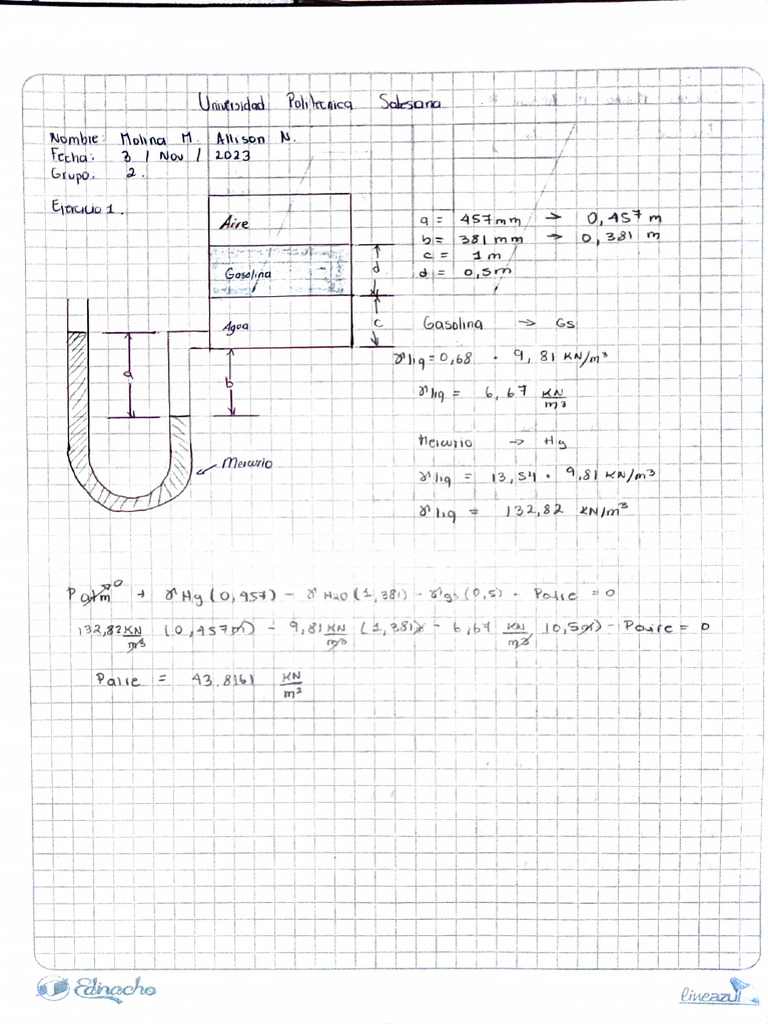 Universidad Politecnica Salesiana
Nombre: Molina M. Allison N.
Fecha: 3 / Nov / 2023
Grupo. 2.
Ejercicio 1.
Aire
Gasolina
Agua
d
c
a
b
Mercurio
a = 457 mm → 0,457 m
b = 381 mm → 0,381 m
c = 1 m
d = 0,5 m
Gasolina → Gs
γliq = 0,68 · 9,81 KN/m³
γliq = 6,67 KN/m³
Mercurio → Hg
γliq = 13,54 · 9,81 KN/m³
γliq = 132,82 KN/m³
Patm⁰ + γHg (0,457) - γH2O (1,381) - γgs (0,5) - Paire = 0
132,82 KN/m³ (0,457m) - 9,81 KN/m³ (1,381) - 6,67 KN/m³ (0,5m) - Paire = 0
Paire = 43.8161 KN/m²
Edinacho
lineazul